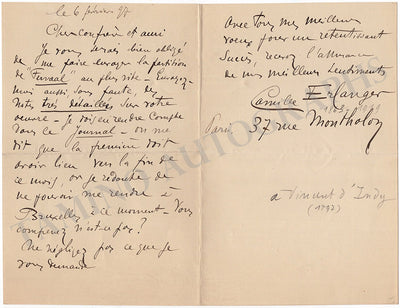 le 6 février 97
Cher confrère et ami
Je vous serais bien obligé
de me faire envoyer la partition
de "Fervaal" au plus vite - Envoyez-
moi aussi sans faute, des
notes très détaillées sur votre
oeuvre - je dois en rendre compte
dans le Journal - on me
dit que la première doit
avoir lieu vers la fin de
ce mois, or je redoute de
ne pouvoir me rendre à
Bruxelles à ce moment - Vous
comprenez n'est-ce pas?
Ne négligez pas ce que je
vous demande
Avec tous mes meilleurs
voeux pour un retentissant
succès, recevez l'assurance
de mes meilleurs sentiments
Camille Erlanger
Paris 37 rue Montholon
a Vincent d'Indy
(1897)
AUTOGRAPHS